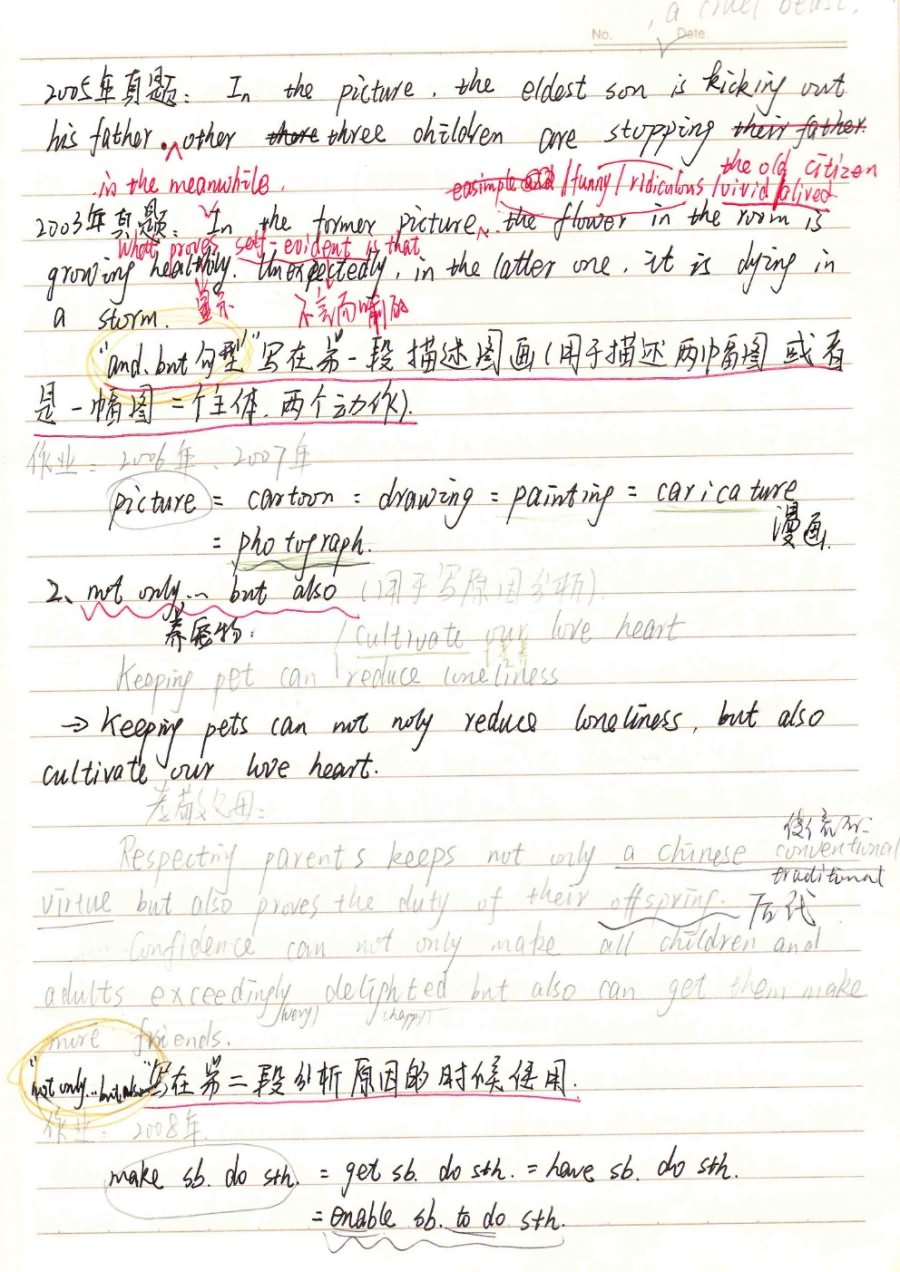 a cruel beast.
No. Date.
2005年真题: In the picture, the eldest son is kicking out
his father. other there three children are stopping their father.
in the meanwhile. /funny/ridiculous/vivid/alived the old citizen
2003年真题: In the former picture, the flower in the room is
What proves self-evident is that
growing healthily. Unexpectedly, in the latter one, it is dying in
a storm. 显示 不言而喻的
"and、but句型"写在第一段描述图画(用于描述两幅图或者
是一幅图二个主体.两个动作).
作业: 2006年、2007年
picture = cartoon = drawing = painting = caricature
漫画.
= photograph.
2、not only... but also (用于写原因分析)
养宠物: cultivate our love heart
Keeping pet can reduce loneliness
→ Keeping pets can not noly reduce loneliness, but also
cultivate our love heart.
孝敬父母:
Respecting parents keeps not only a chinese conventional
traditional
virtue but also proves the duty of their offspring. 后代
Confidence can not only make all children and
adults exceedingly delighted but also can get them make
(very) (happy)
more friends.
"not only...but also"写在第二段分析原因的时候使用.
作业: 2008年.
make sb. do sth. = get sb. do sth. = have sb. do sth.
= enable sb. to do sth.